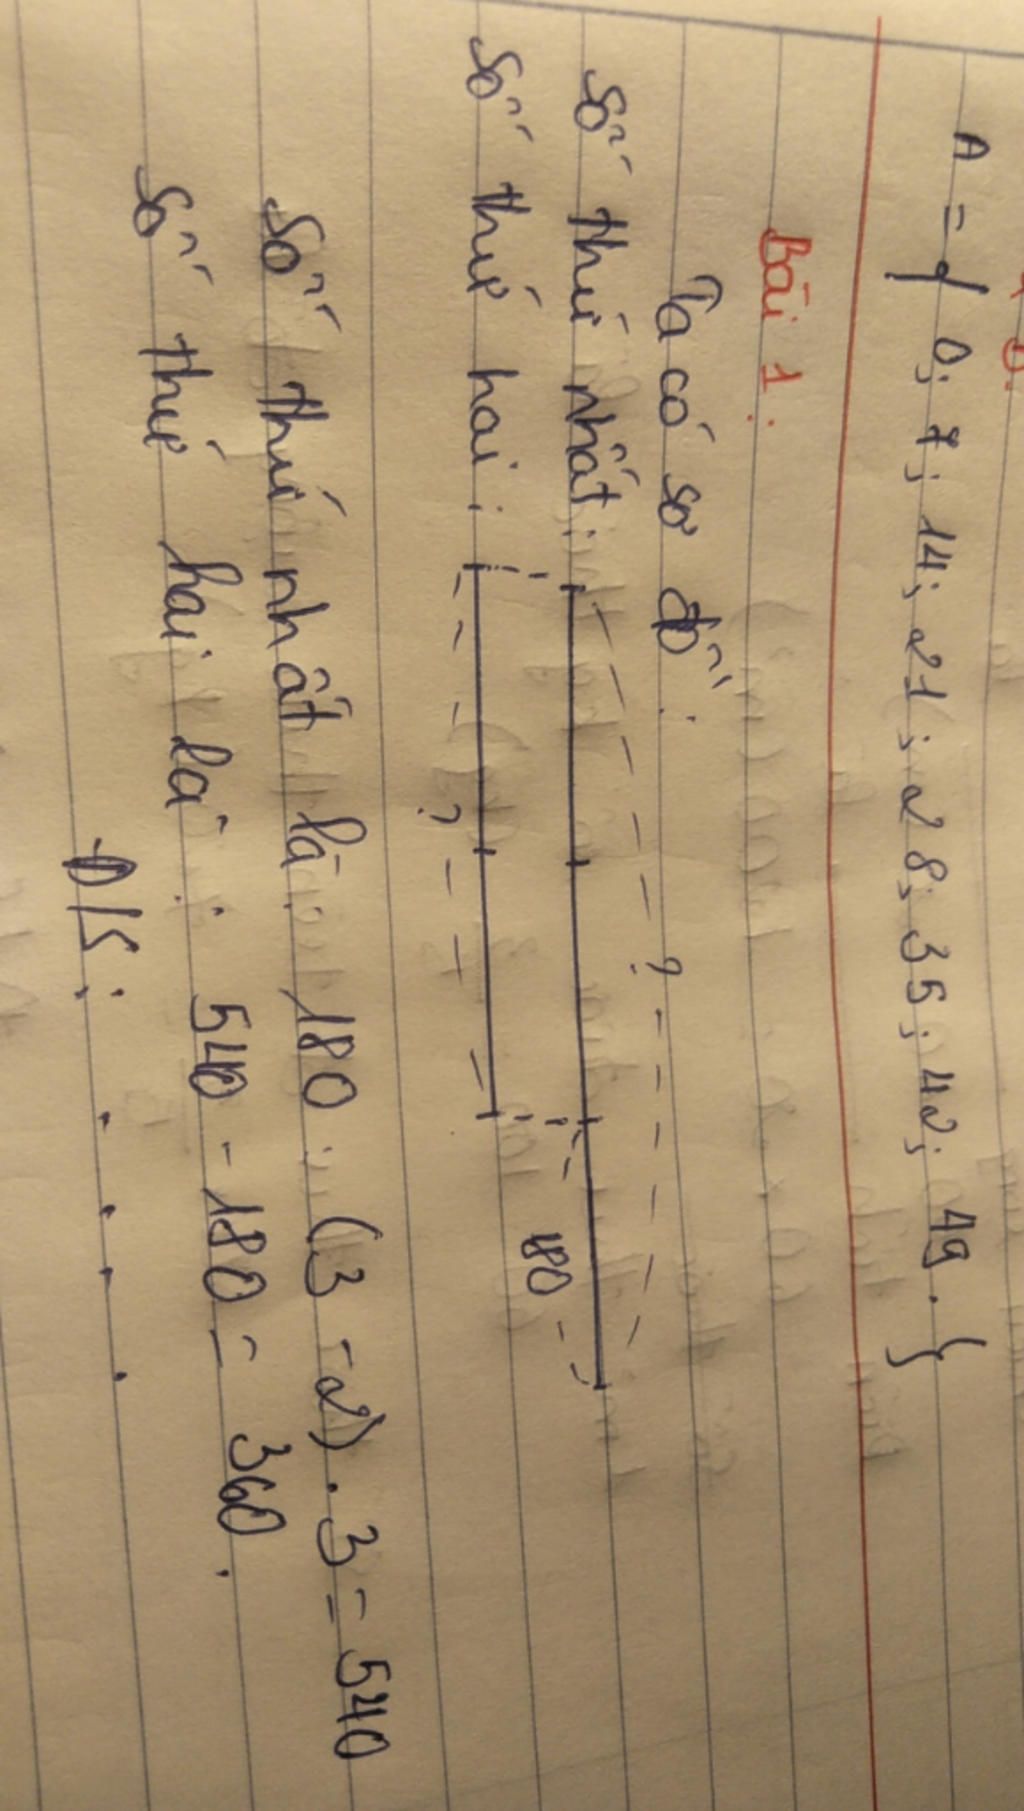 A = { 0; 7; 14; 21; 28; 35; 42; 49. }
Bài 1:
Ta có sơ đồ:
?
Số thứ nhất:
180
Số thứ hai:
?
Số thứ nhất là: 180 : (3 - 2) . 3 = 540
Số thứ hai là: 540 - 180 = 360.
Đ/S: . . . .